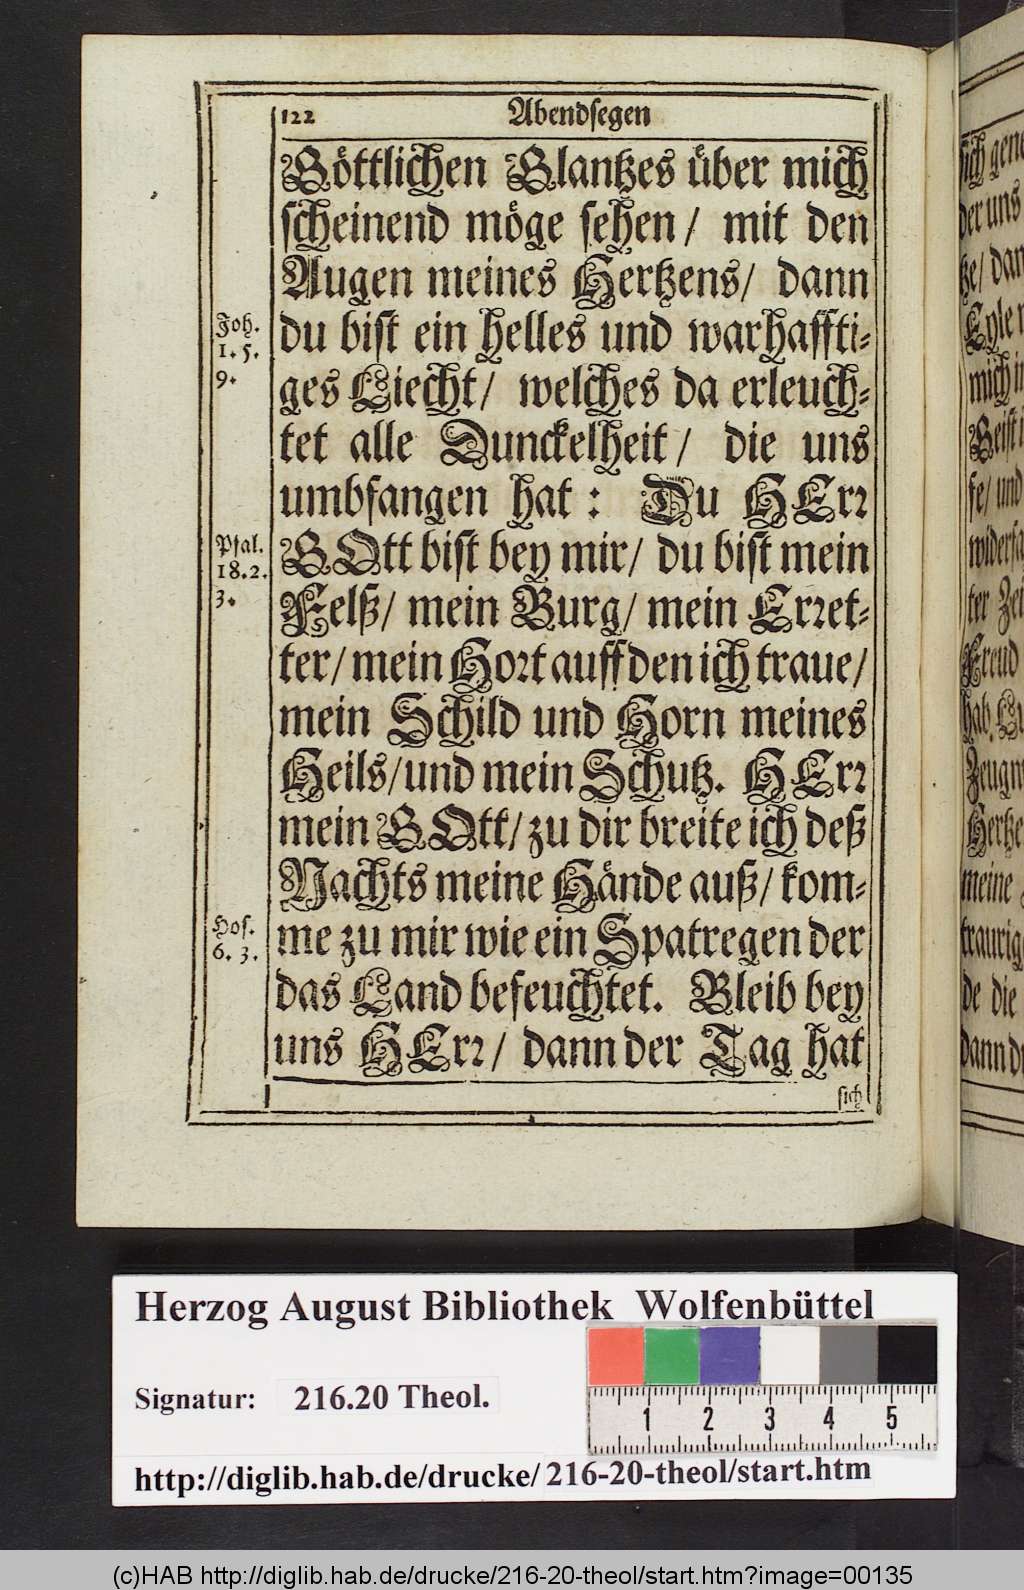 122 Abendsegen
Göttlichen Glantzes über mich
scheinend möge sehen/ mit den
Augen meines Hertzens/ dann
Joh. 1. 5. 9.
du bist ein helles und warhaffti-
ges Liecht/ welches da erleuch-
tet alle Dunckelheit/ die uns
umbfangen hat: Du HErr
Psal. 18. 2. 3.
GOtt bist bey mir/ du bist mein
Felß/ mein Burg/ mein Erret-
ter/ mein Hort auff den ich traue/
mein Schild und Horn meines
Heils/ und mein Schutz. HErr
mein GOtt/ zu dir breite ich deß
Nachts meine Hände auß/ kom-
Hos. 6. 3.
me zu mir wie ein Spatregen der
das Land befeuchtet. Bleib bey
uns HErr/ dann der Tag hat
sich
Herzog August Bibliothek Wolfenbüttel
Signatur: 216.20 Theol.
1 2 3 4 5
http://diglib.hab.de/drucke/216-20-theol/start.htm
(c)HAB http://diglib.hab.de/drucke/216-20-theol/start.htm?image=00135